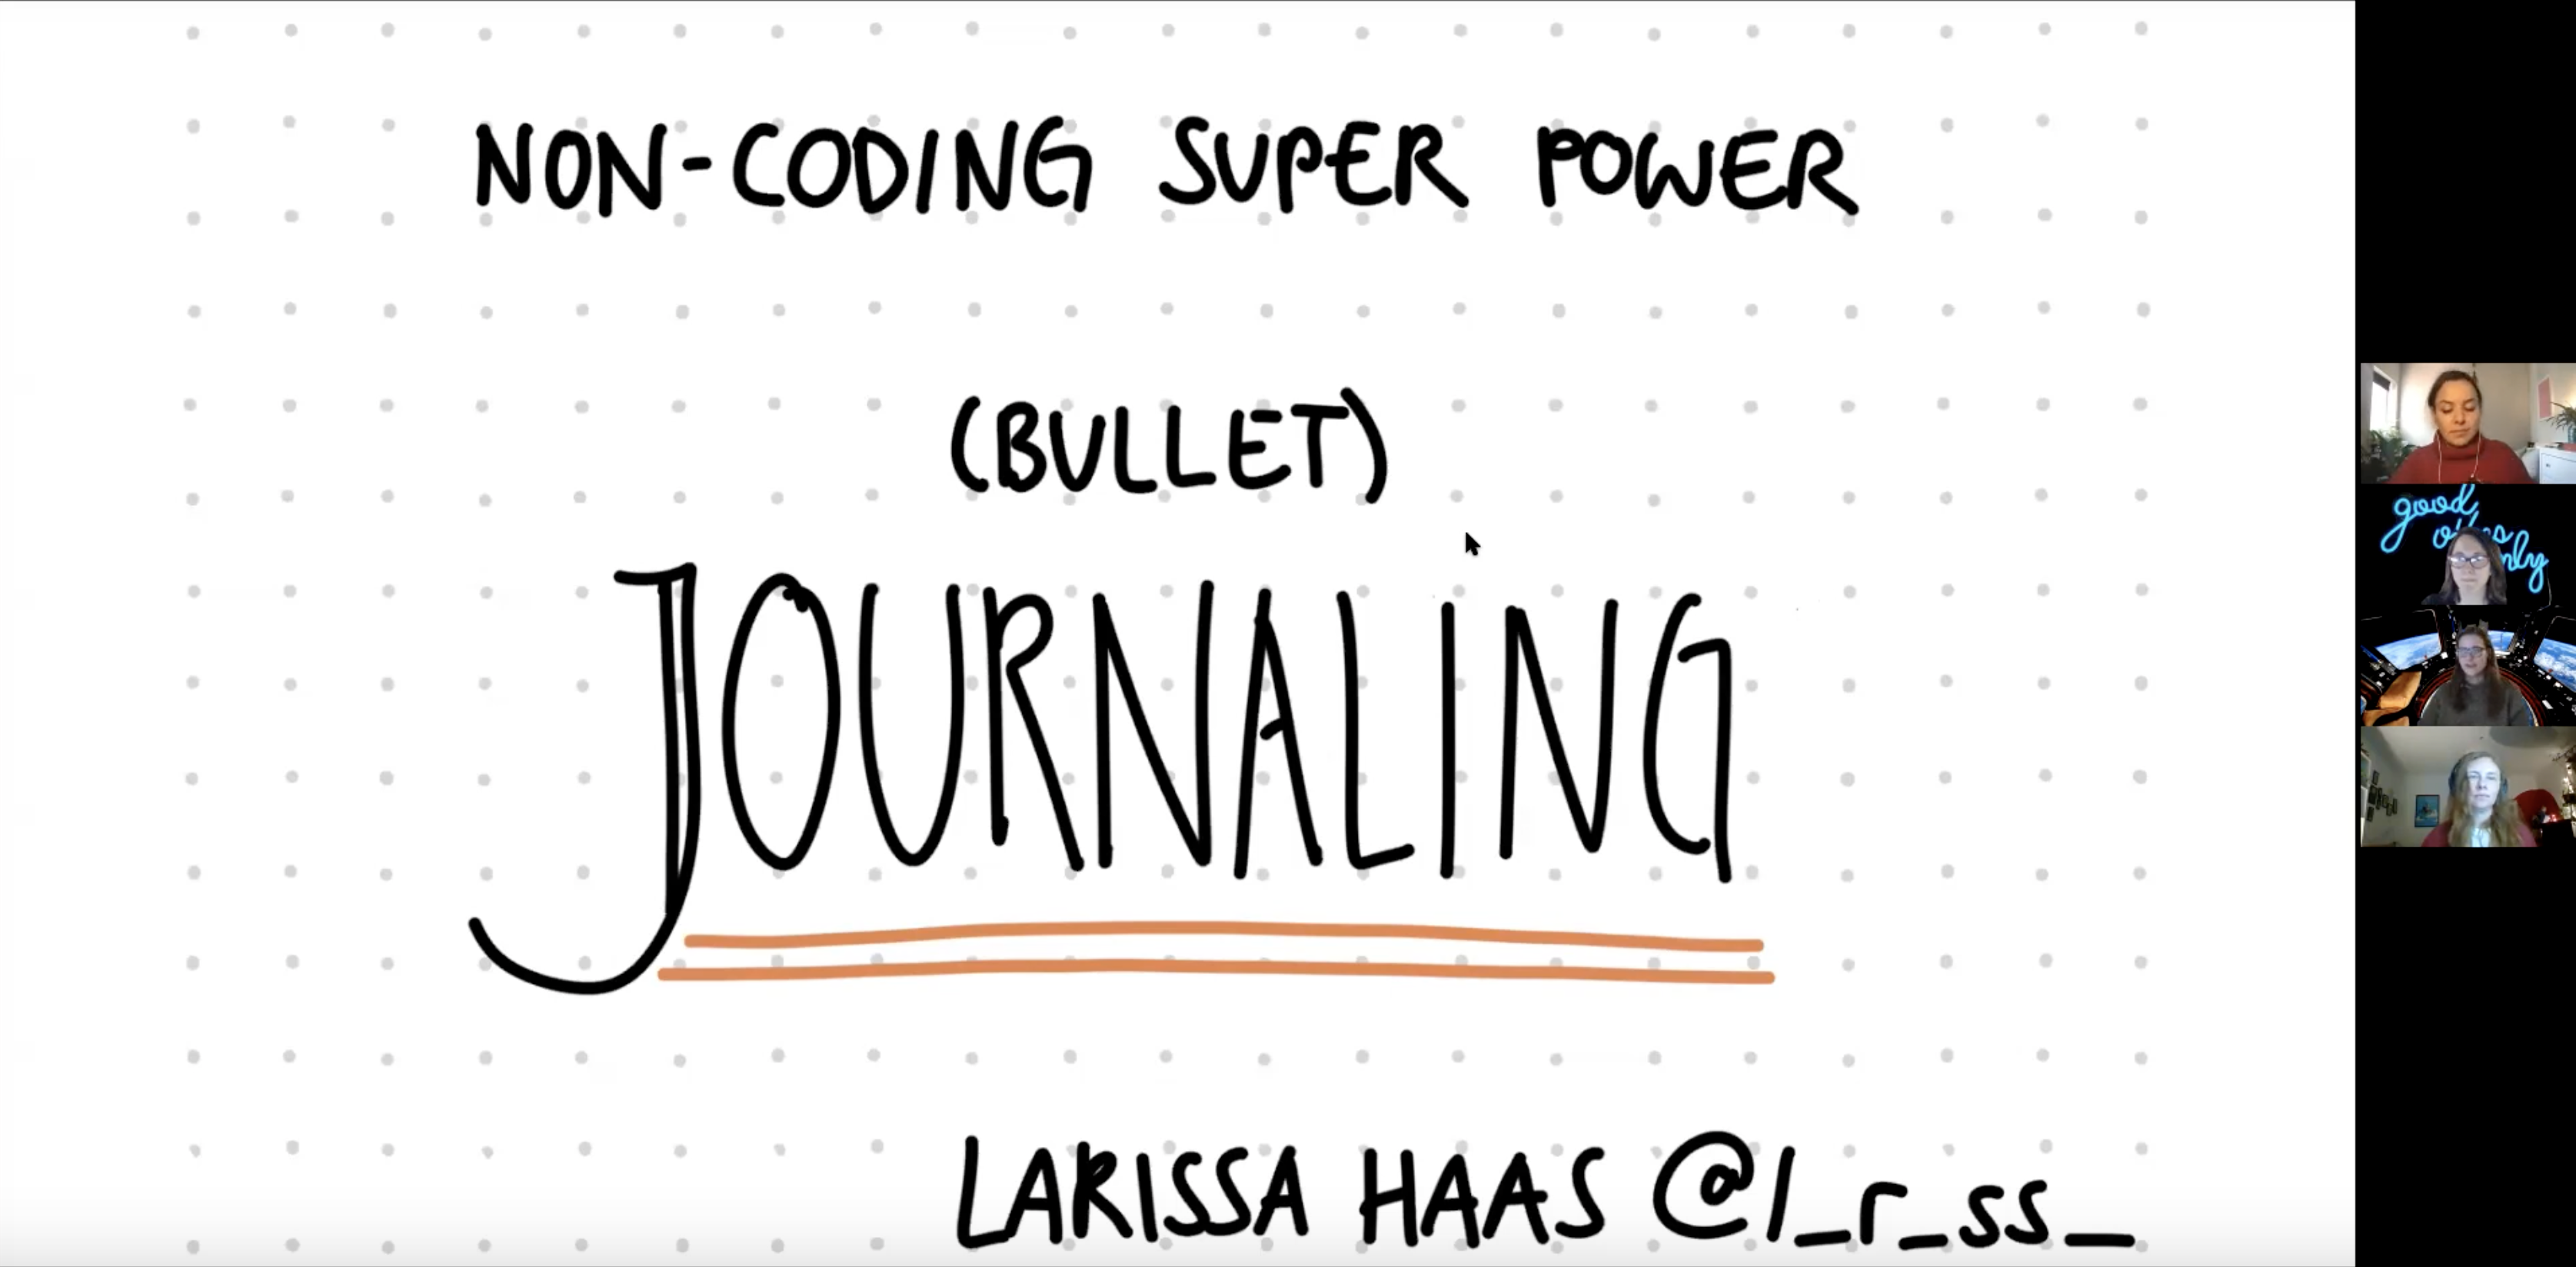 NON-CODING SUPER POWER
(BULLET)
JOURNALING
LARISSA HAAS @l_r_ss_
good
only